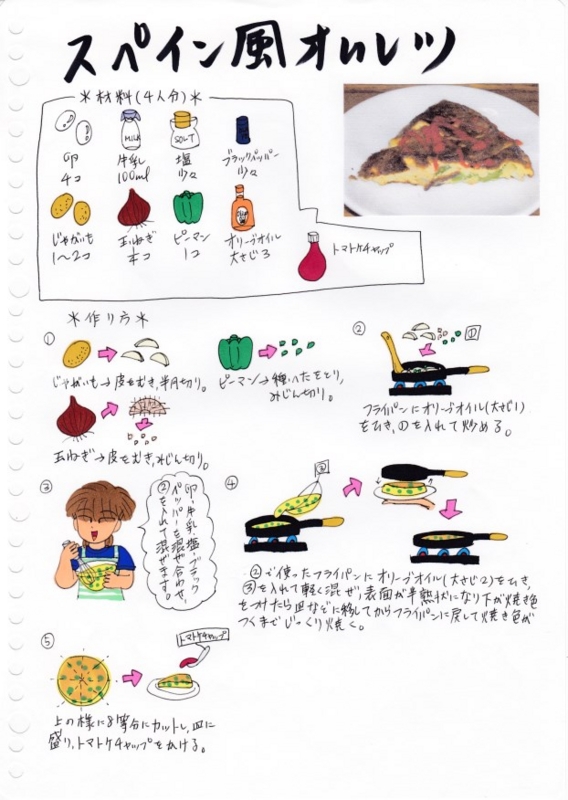 スペイン風オムレツ
＊材料(4人分)＊
卵
4コ
MILK
牛乳
100ml
SOLT
塩
少々
ブラックペッパー
少々
じゃがいも
1〜2コ
玉ねぎ
ピーマン
1コ
オリーブオイル
大さじ3
トマトケチャップ
＊作り方＊
①
じゃがいも→皮をむき、半月切り。
玉ねぎ→皮をむき、みじん切り。
ピーマン→種、へたをとり、
みじん切り。
②
①
フライパンにオリーブオイル(大さじ1)
をひき、①を入れて炒める。
③
卵、牛乳、塩、ブラック
ペッパーを混ぜ合わせ、
②を入れて混ぜます。
④
③
②で使ったフライパンにオリーブオイル(大さじ2)をひき、
③を入れて軽く混ぜ、表面が半熟状になり下が焼き色
をつけたら皿などに移してからフライパンに戻して焼き色が
つくまでじっくり焼く。
⑤
トマトケチャップ
上の様に8等分にカットし、皿に
盛り、トマトケチャップをかける。